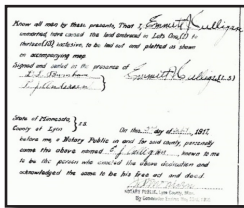 Know all men by these presents, That I, Emmett Culligan
unmarried, have caused the land embraced in Lots One(1) to
thirteen(13) inclusive, to be laid out and platted as shown
on accompanying map.
Signed and sealed in the presence of
Emmett Culligan (L.S)
State of Minnesota,
County of Lyon } SS
On this day of 1917
before me, a Notary Public in and for said county, personally
came the above named E. J. Culligan known to me
to be the person who executed the above dedication and
acknowledged the same to be his free act and deed.
NOTARY PUBLIC, Lyon County, Minn.
My Commission Expires